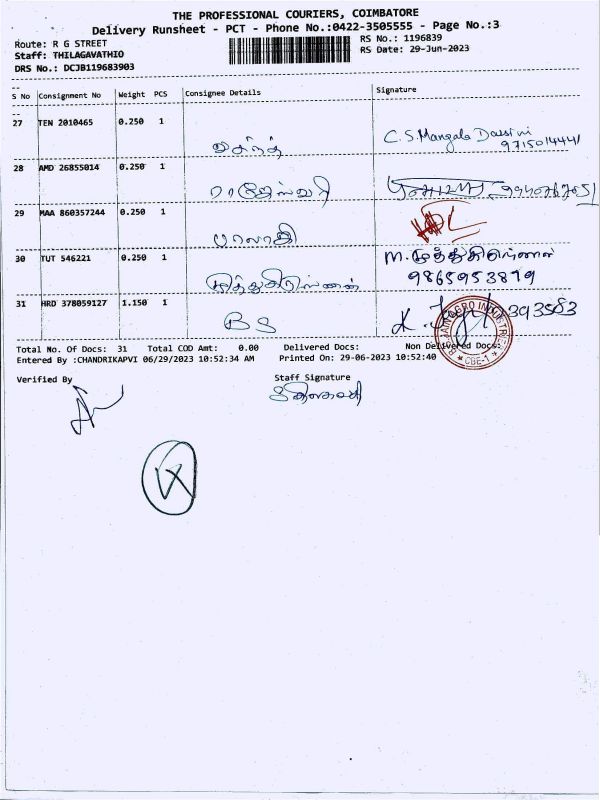 THE PROFESSIONAL COURIERS, COIMBATORE
Delivery Runsheet - PCT - Phone No.:0422-3505555 - Page No.:3
Route: R G STREET
RS No.: 1196839
Staff: THILAGAVATHIO
RS Date: 29-Jun-2023
DRS No.: DCJB119683903
S No Consignment No Weight PCS Consignee Details Signature
27 TEN 2010465 0.250 1
C.S. Mangala Dassini
9715014441
28 AMD 26855014 0.250 1
ராஜேஸ்வரி
29 MAA 860357244 0.250 1
பாலாஜி
30 TUT 546221 0.250 1
முத்துகிருஷ்ணன்
9865953819
31 HRD 378059127 1.150 1
BS
K. 393583
CBE-1
Total No. Of Docs: 31 Total COD Amt: 0.00 Delivered Docs: Non Delivered Docs:
Entered By :CHANDRIKAPVI 06/29/2023 10:52:34 AM Printed On: 29-06-2023 10:52:40
Verified By Staff Signature